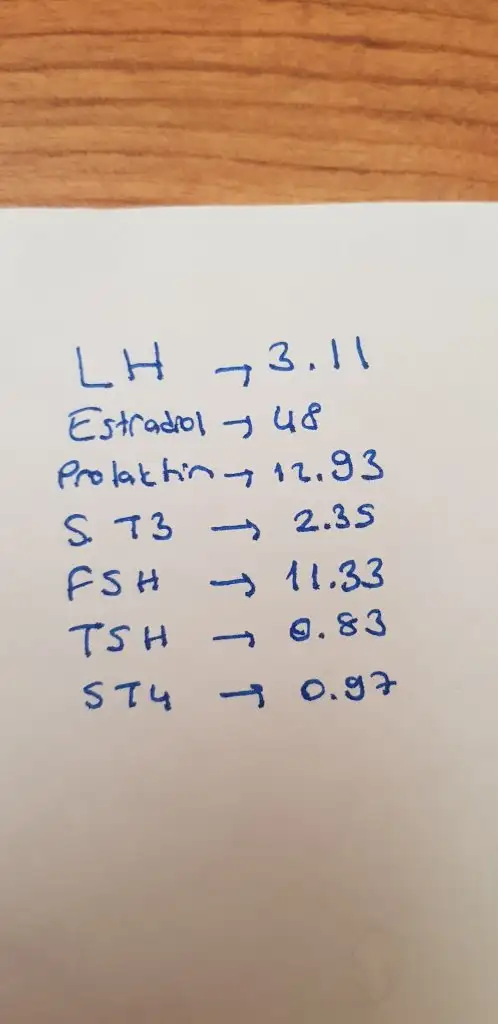 LH → 3.11
Estradiol → 48
Prolaktin → 12.93
S. T3 → 2.35
FSH → 11.33
TSH → 0.83
ST4 → 0.97